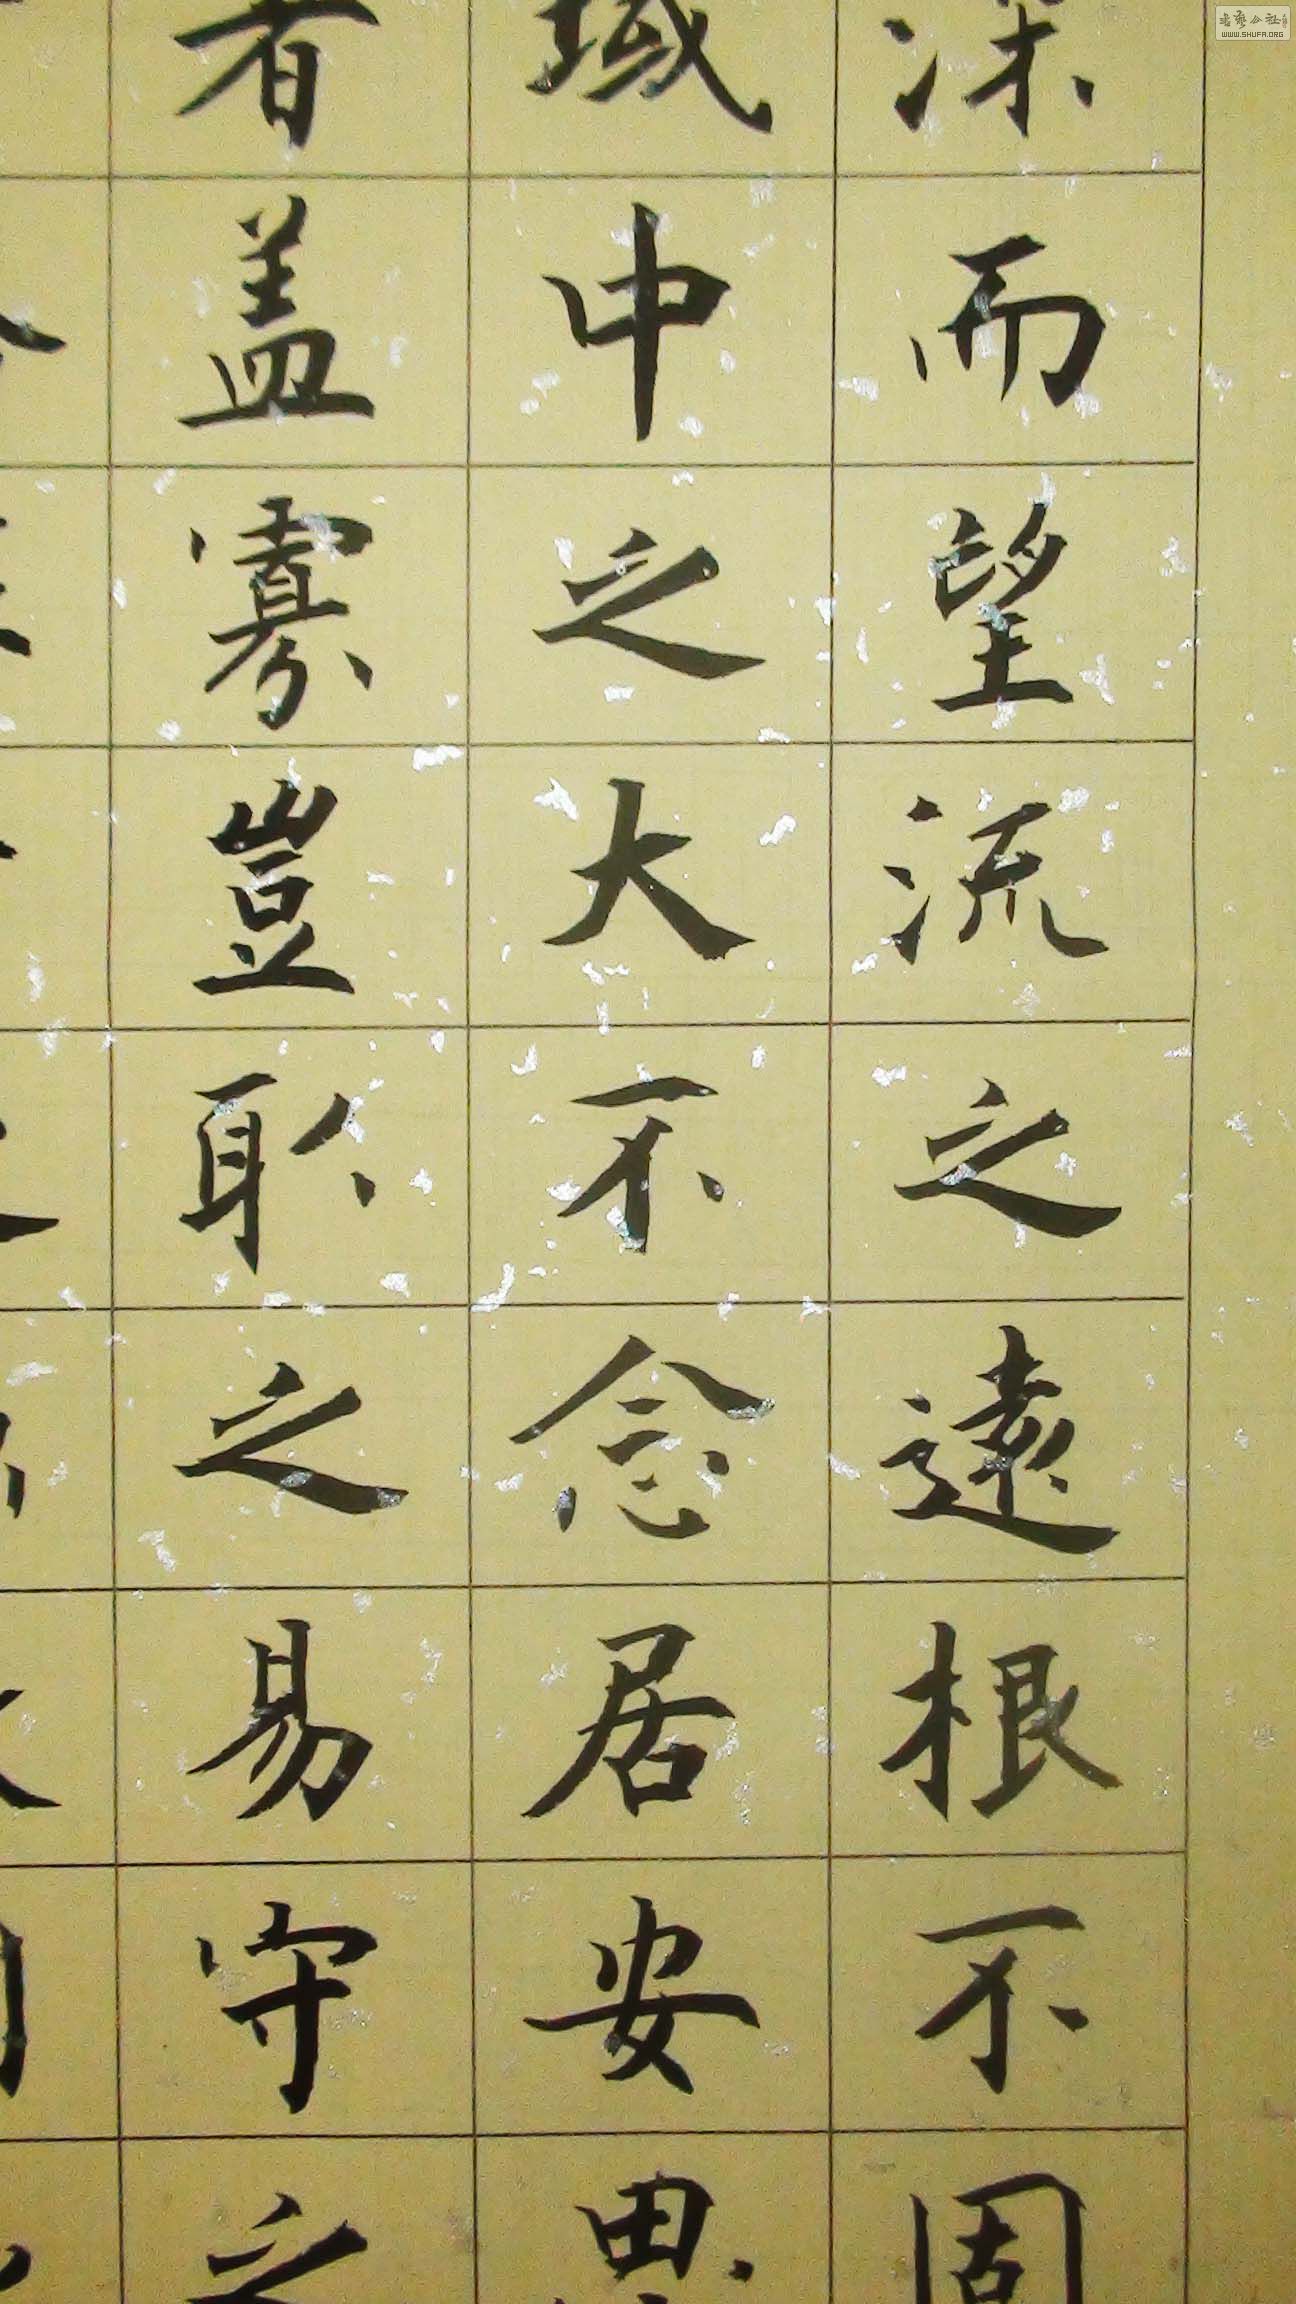 深而望流之遠根不固
域中之大不念居安思
者盖寡豈取之易守之
書藝公社
WWW.SHUFA.ORG